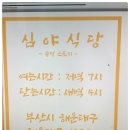 심야식당
여는시간 : 저녁 7시
닫는시간 : 새벽 4시
부산시 해운대구